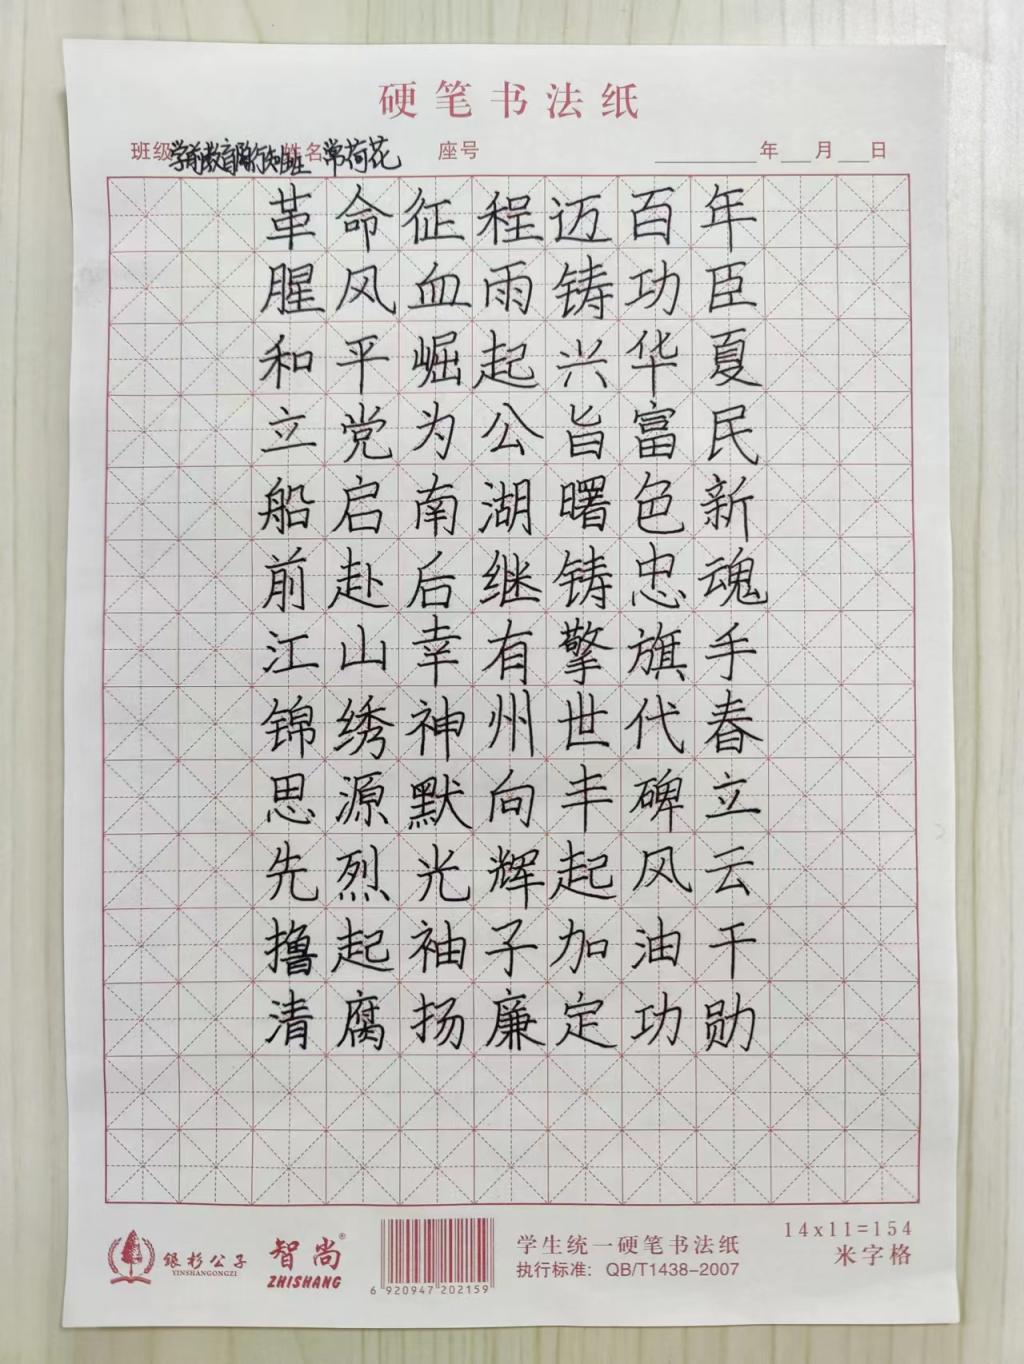 硬笔书法纸
班级 姓名 常荷花 座号 年 月 日
革命征程迈百年
腥风血雨铸功臣
和平崛起兴华夏
立党为公旨富民
船启南湖曙色新
前赴后继铸忠魂
江山幸有擎旗手
锦绣神州世代春
思源默向丰碑立
先烈光辉起风云
撸起袖子加油干
清腐扬廉定功勋
银杉公子
YINSHANGONGZI
智尚®
ZHISHANG
6 920947 202159
学生统一硬笔书法纸
执行标准：QB/T1438-2007
14x11=154
米字格